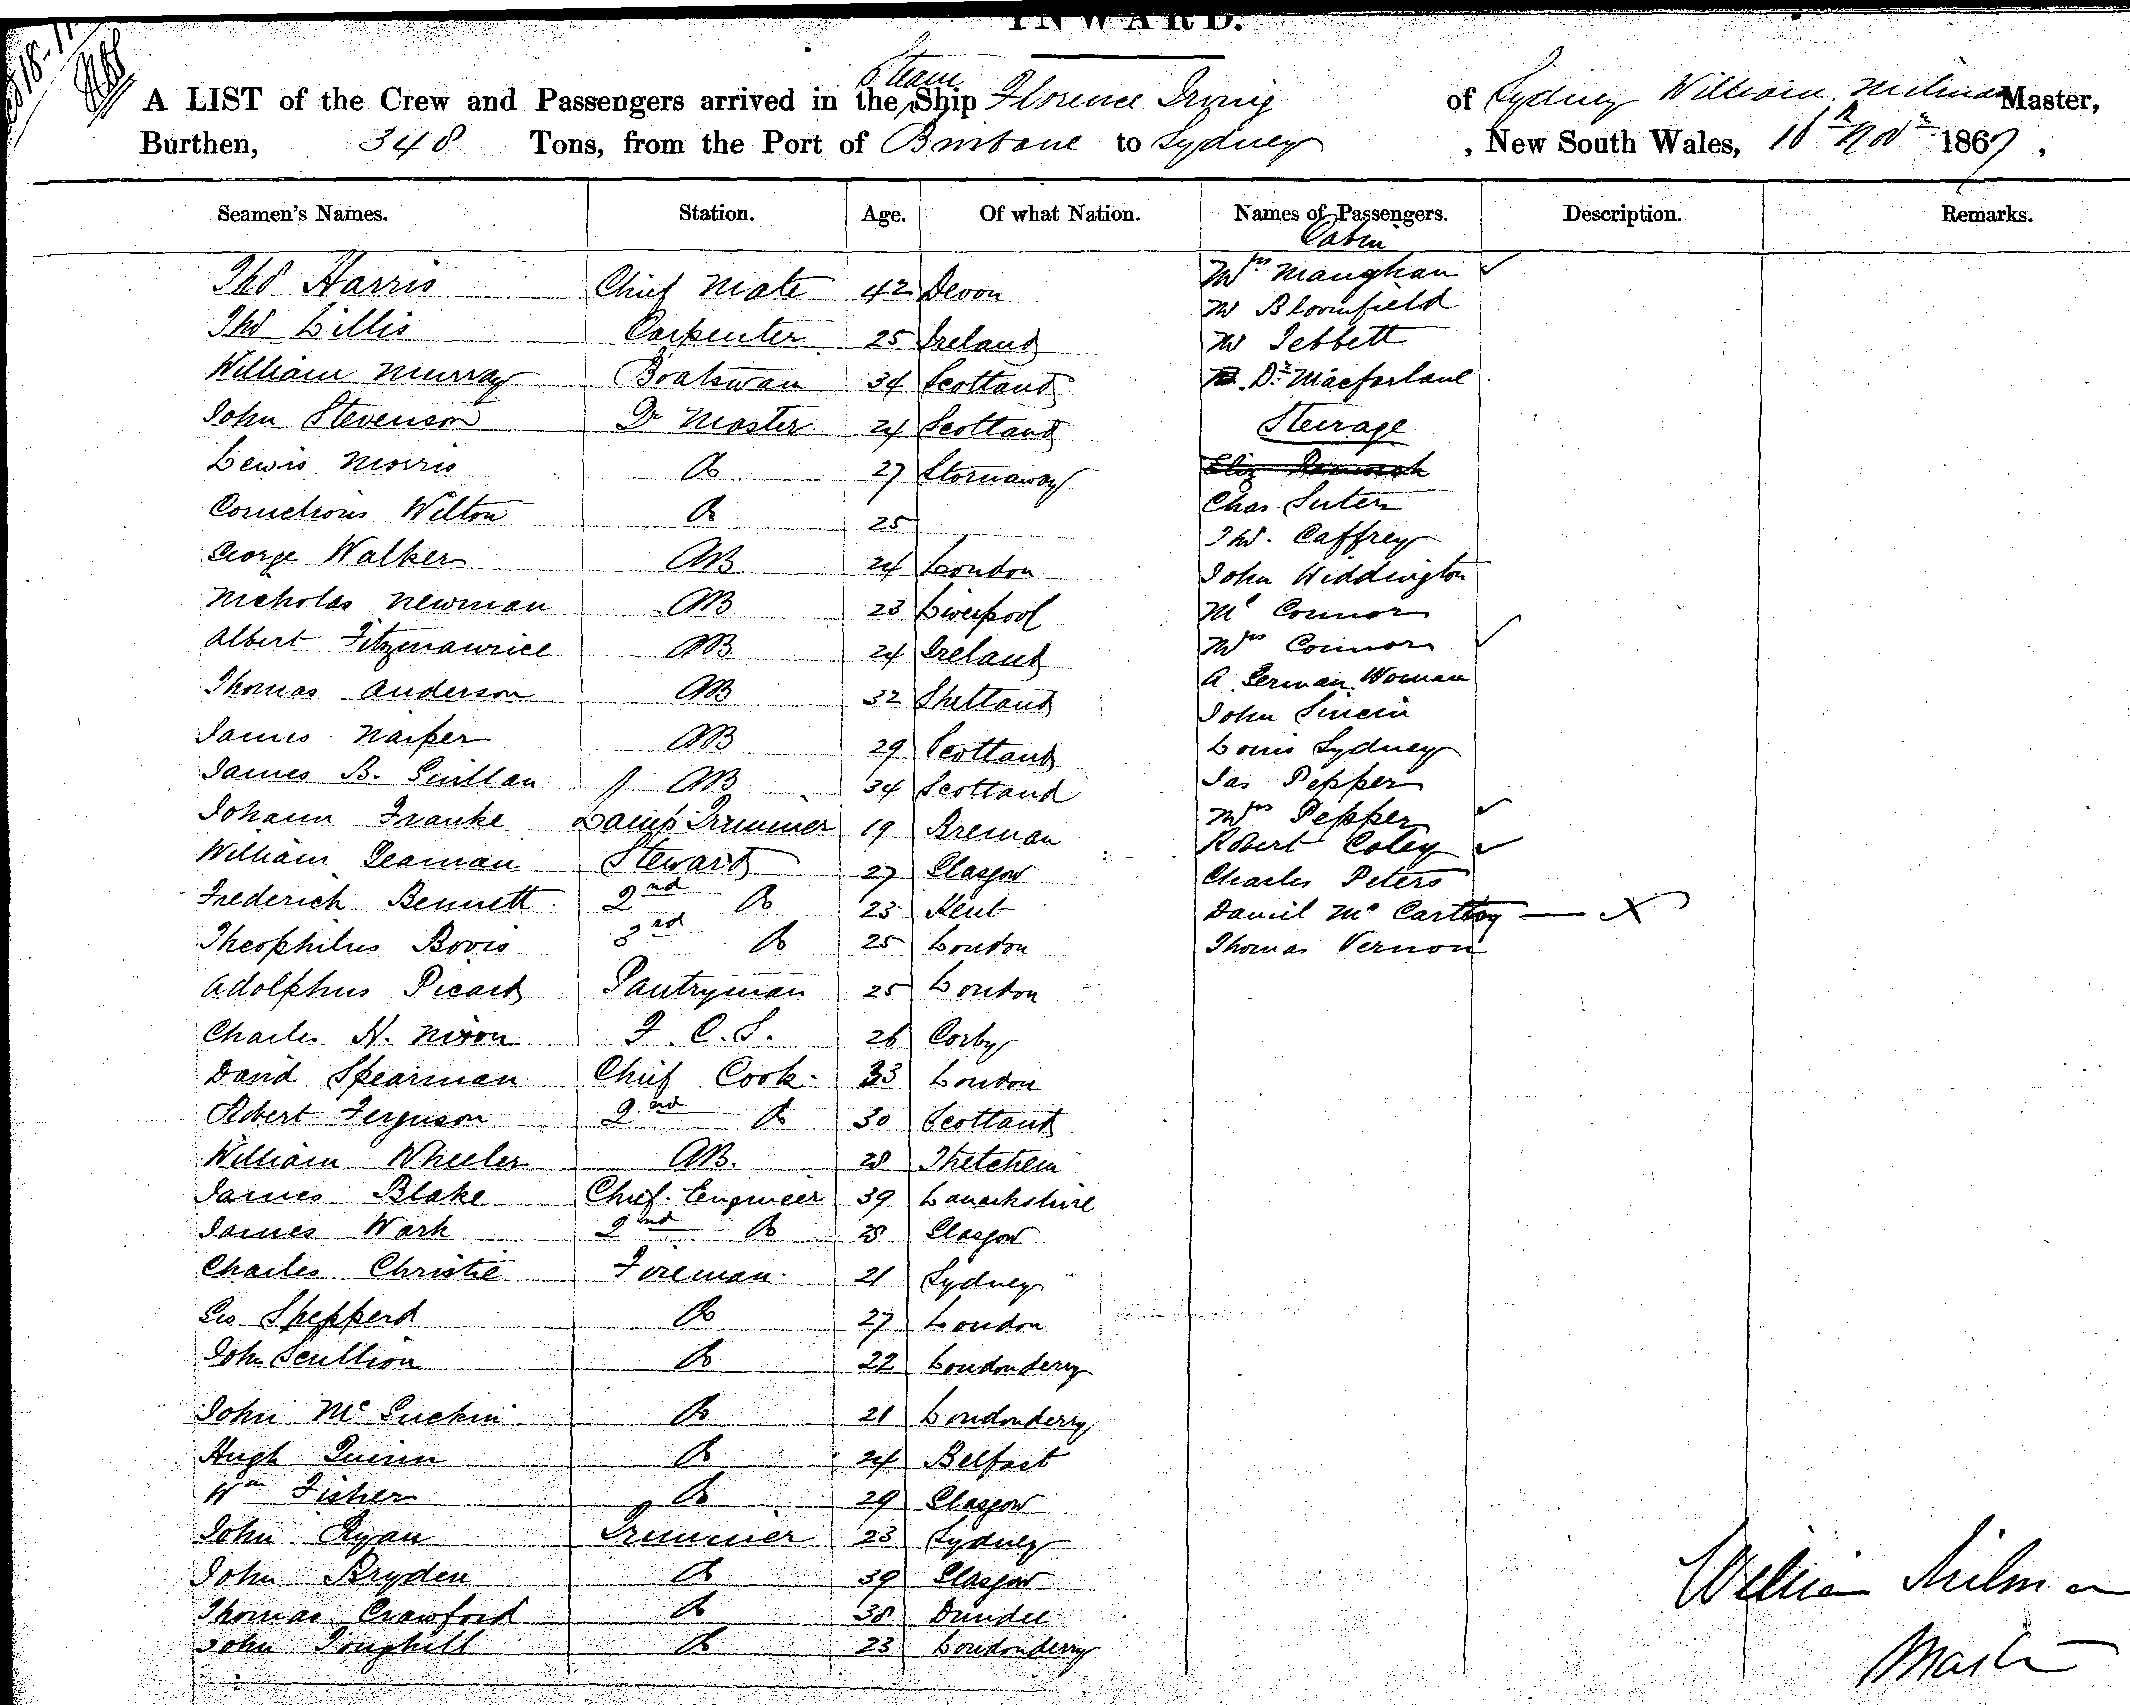 INWARD.
A LIST of the Crew and Passengers arrived in the Steam Ship Florence Irving of Sydney William Milman Master,
Burthen, 348 Tons, from the Port of Brisbane to Sydney , New South Wales, 18th Nov 1867 ,
Seamen's Names. Station. Age. Of what Nation. Names of Passengers. Description. Remarks.
Cabin
Thos Harris Chief Mate 42 Devon Mrs Maughan
Mr Bloomfield
Thos Lillis Carpenter 25 Ireland Mr Tebbett
William Murray Boatswain 34 Scotland Dr Macfarlane
John Stevenson Qr Master 24 Scotland Steerage
Lewis Morris Do 27 Stornaway
Wilton Do 25 Chas Suter
Thos. Caffrey
George Walker AB 24 London John Widdington
Nicholas Newman AB 23 Liverpool Mr Connor
Albert Fitzmaurice AB 24 Ireland Mrs Connor
A German Woman
Thomas Anderson AB 32 Shetland John
James Napier AB 29 Scotland Louis Sydney
James B. Gmillan AB 34 Scotland Jas Pepper
Johann Franke Lamp Trimmer 19 Breman Mrs Pepper
Robert Coley
William Seaman Steward 27 Glasgow Charles Peters
Frederick Bennett 2nd Do 23 Kent Daniel Mc Carthy — X
Theophilus Bovis 3rd Do 25 London Thomas Vernon
Adolphus Picard Pantryman 25 London
Charles H. Nixon F. C. S. 26 Corby
David Spearman Chief Cook 33 London
Robert Ferguson 2nd Do 30 Scotland
William Wheeler AB. 28
James Blake Chief Engineer 39 Lanarkshire
James Wark 2nd Do 28 Glasgow
Charles Christie Fireman 21 Sydney
Geo Shepperd Do 27 London
John Scullion Do 22 Londonderry
John Mc Guckin Do 21 Londonderry
Hugh Quinn Do 24 Belfast
Wm Fisher Do 29 Glasgow
John Ryan Trimmer 23 Sydney
John Bryden Do 39 Glasgow
Thomas Crawford Do 38 Dundee
John Toughill Do 23 Londonderry
William Milman
Master